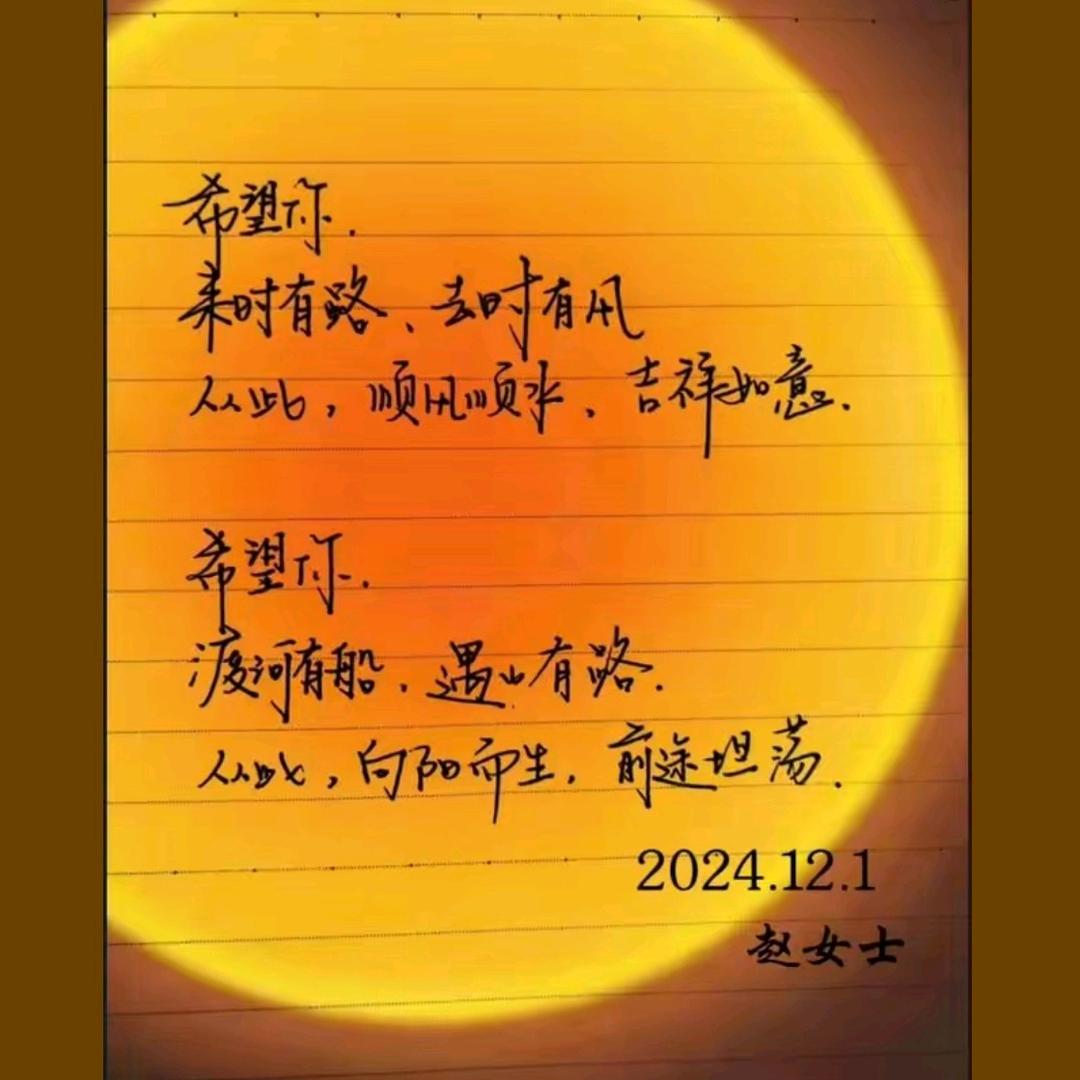 希望你.
来时有路、去时有风
从此，顺风顺水、吉祥如意.
希望你.
渡河有船.遇山有路.
从此，向阳而生.前途坦荡.
2024.12.1
赵女士